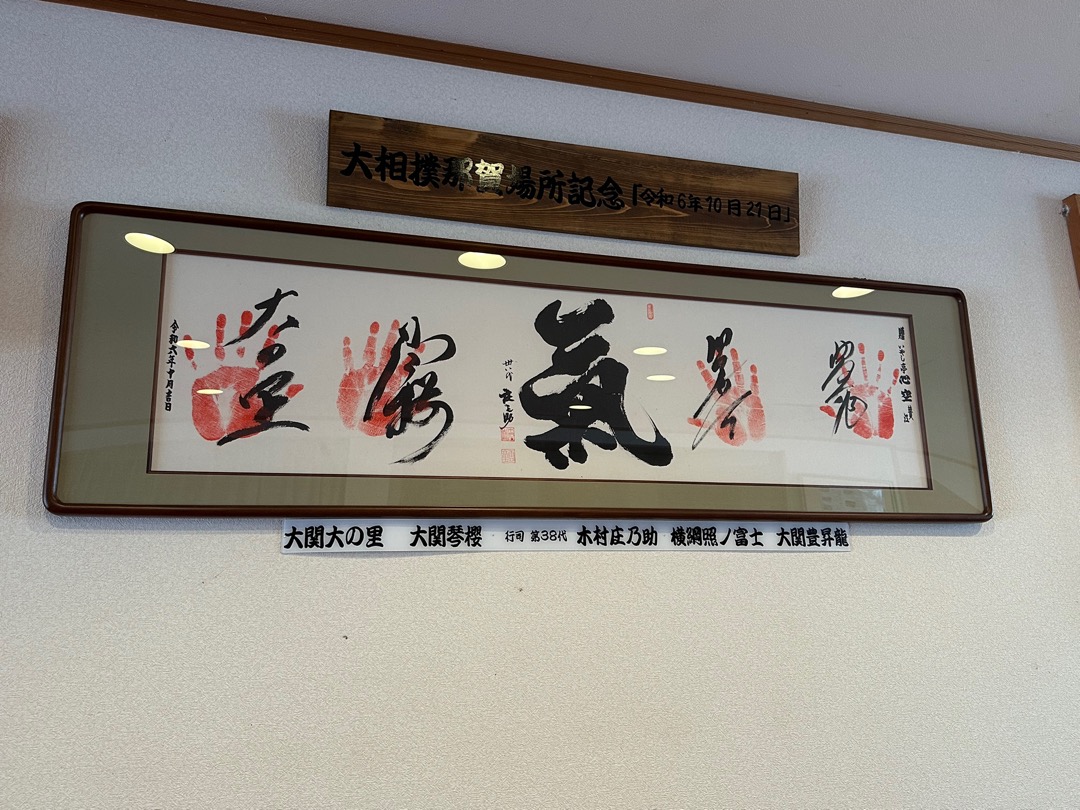 大相撲那賀場所記念「令和6年10月21日」
氣
卅八代 庄之助
琴櫻
大の里
令和六年十月吉日
大関大の里 大関琴櫻 行司 第38代 木村庄乃助 横綱照ノ富士 大関豊昇龍